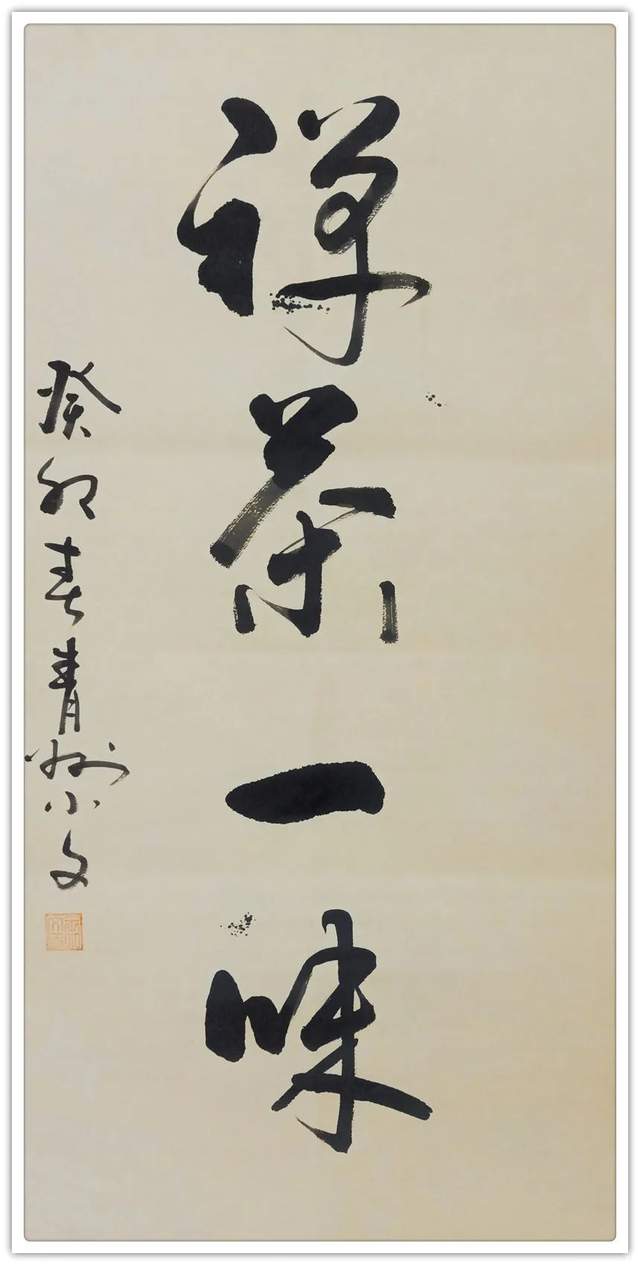 禅茶一味
癸卯春青州小文